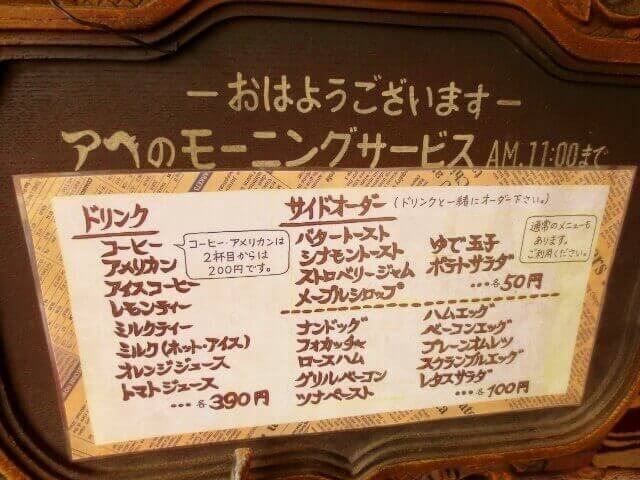 ーおはようございますー
アペのモーニングサービス AM.11:00まで
ドリンク
コーヒー
アメリカン
アイスコーヒー
レモンティー
ミルクティー
ミルク(ホット・アイス)
オレンジジュース
トマトジュース
…各390円
コーヒー・アメリカンは
2杯目からは
200円です。
サイドオーダー (ドリンクと一緒にオーダー下さい。)
バタートースト
シナモントースト
ストロベリージャム
メープルシロップ
ゆで玉子
ポテトサラダ
…各50円
通常のメニューも
あります。
ご利用ください。
ナンドッグ
フォカッチャ
ロースハム
グリルベーコン
ツナペースト
ハムエッグ
ベーコンエッグ
プレーンオムレツ
スクランブルエッグ
レタスサラダ
…各100円